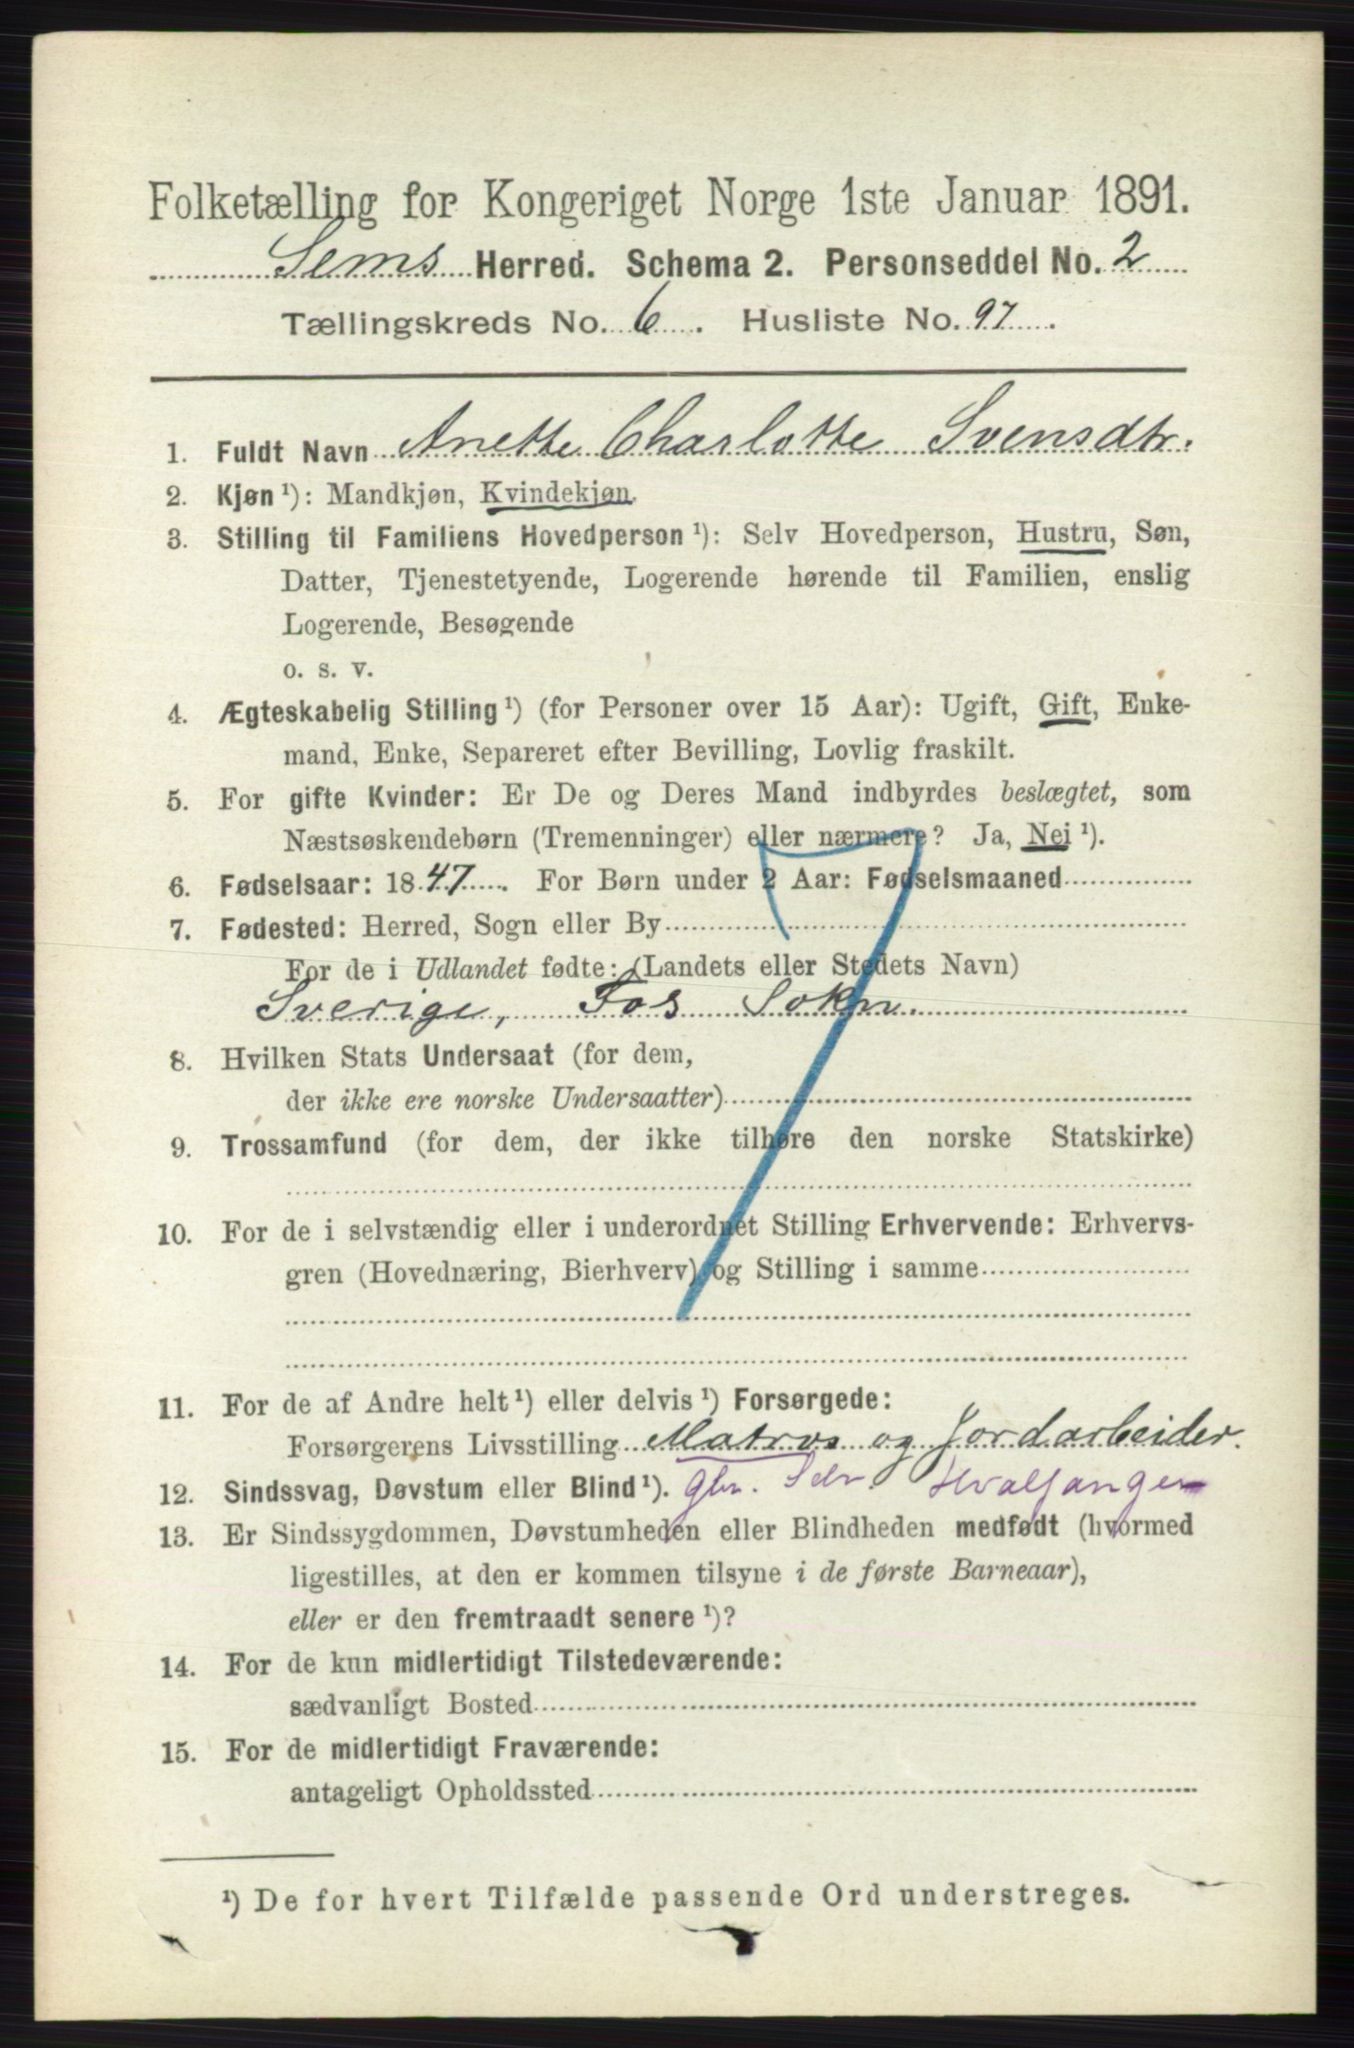 Folketælling for Kongeriget Norge 1ste Januar 1891.
Sems Herred. Schema 2. Personseddel No. 2
Tællingskreds No. 6. Husliste No. 97.
1. Fuldt Navn Anette Charlotte Svensdtr.
2. Kjøn ¹): Mandkjøn, Kvindekjøn.
3. Stilling til Familiens Hovedperson ¹): Selv Hovedperson, Hustru, Søn,
Datter, Tjenestetyende, Logerende hørende til Familien, enslig
Logerende, Besøgende
o. s. v.
4. Ægteskabelig Stilling ¹) (for Personer over 15 Aar): Ugift, Gift, Enke-
mand, Enke, Separeret efter Bevilling, Lovlig fraskilt.
5. For gifte Kvinder: Er De og Deres Mand indbyrdes beslægtet, som
Næstsøskendebørn (Tremenninger) eller nærmere? Ja, Nei ¹).
6. Fødselsaar: 1847. For Børn under 2 Aar: Fødselsmaaned
7. Fødested: Herred, Sogn eller By
For de i Udlandet fødte: (Landets eller Stedets Navn)
Sverige, Fos Sokn.
8. Hvilken Stats Undersaat (for dem,
der ikke ere norske Undersaatter)
9. Trossamfund (for dem, der ikke tilhøre den norske Statskirke)
10. For de i selvstændig eller i underordnet Stilling Erhvervende: Erhvervs-
gren (Hovednæring, Bierhverv) og Stilling i samme
11. For de af Andre helt ¹) eller delvis ¹) Forsørgede:
Forsørgerens Livsstilling Matros og Jordarbeider.
12. Sindssvag, Døvstum eller Blind ¹). Hvalfanger
13. Er Sindssygdommen, Døvstumheden eller Blindheden medfødt (hvormed
ligestilles, at den er kommen tilsyne i de første Barneaar),
eller er den fremtraadt senere ¹)?
14. For de kun midlertidigt Tilstedeværende:
sædvanligt Bosted
15. For de midlertidigt Fraværende:
antageligt Opholdssted
¹) De for hvert Tilfælde passende Ord understreges.